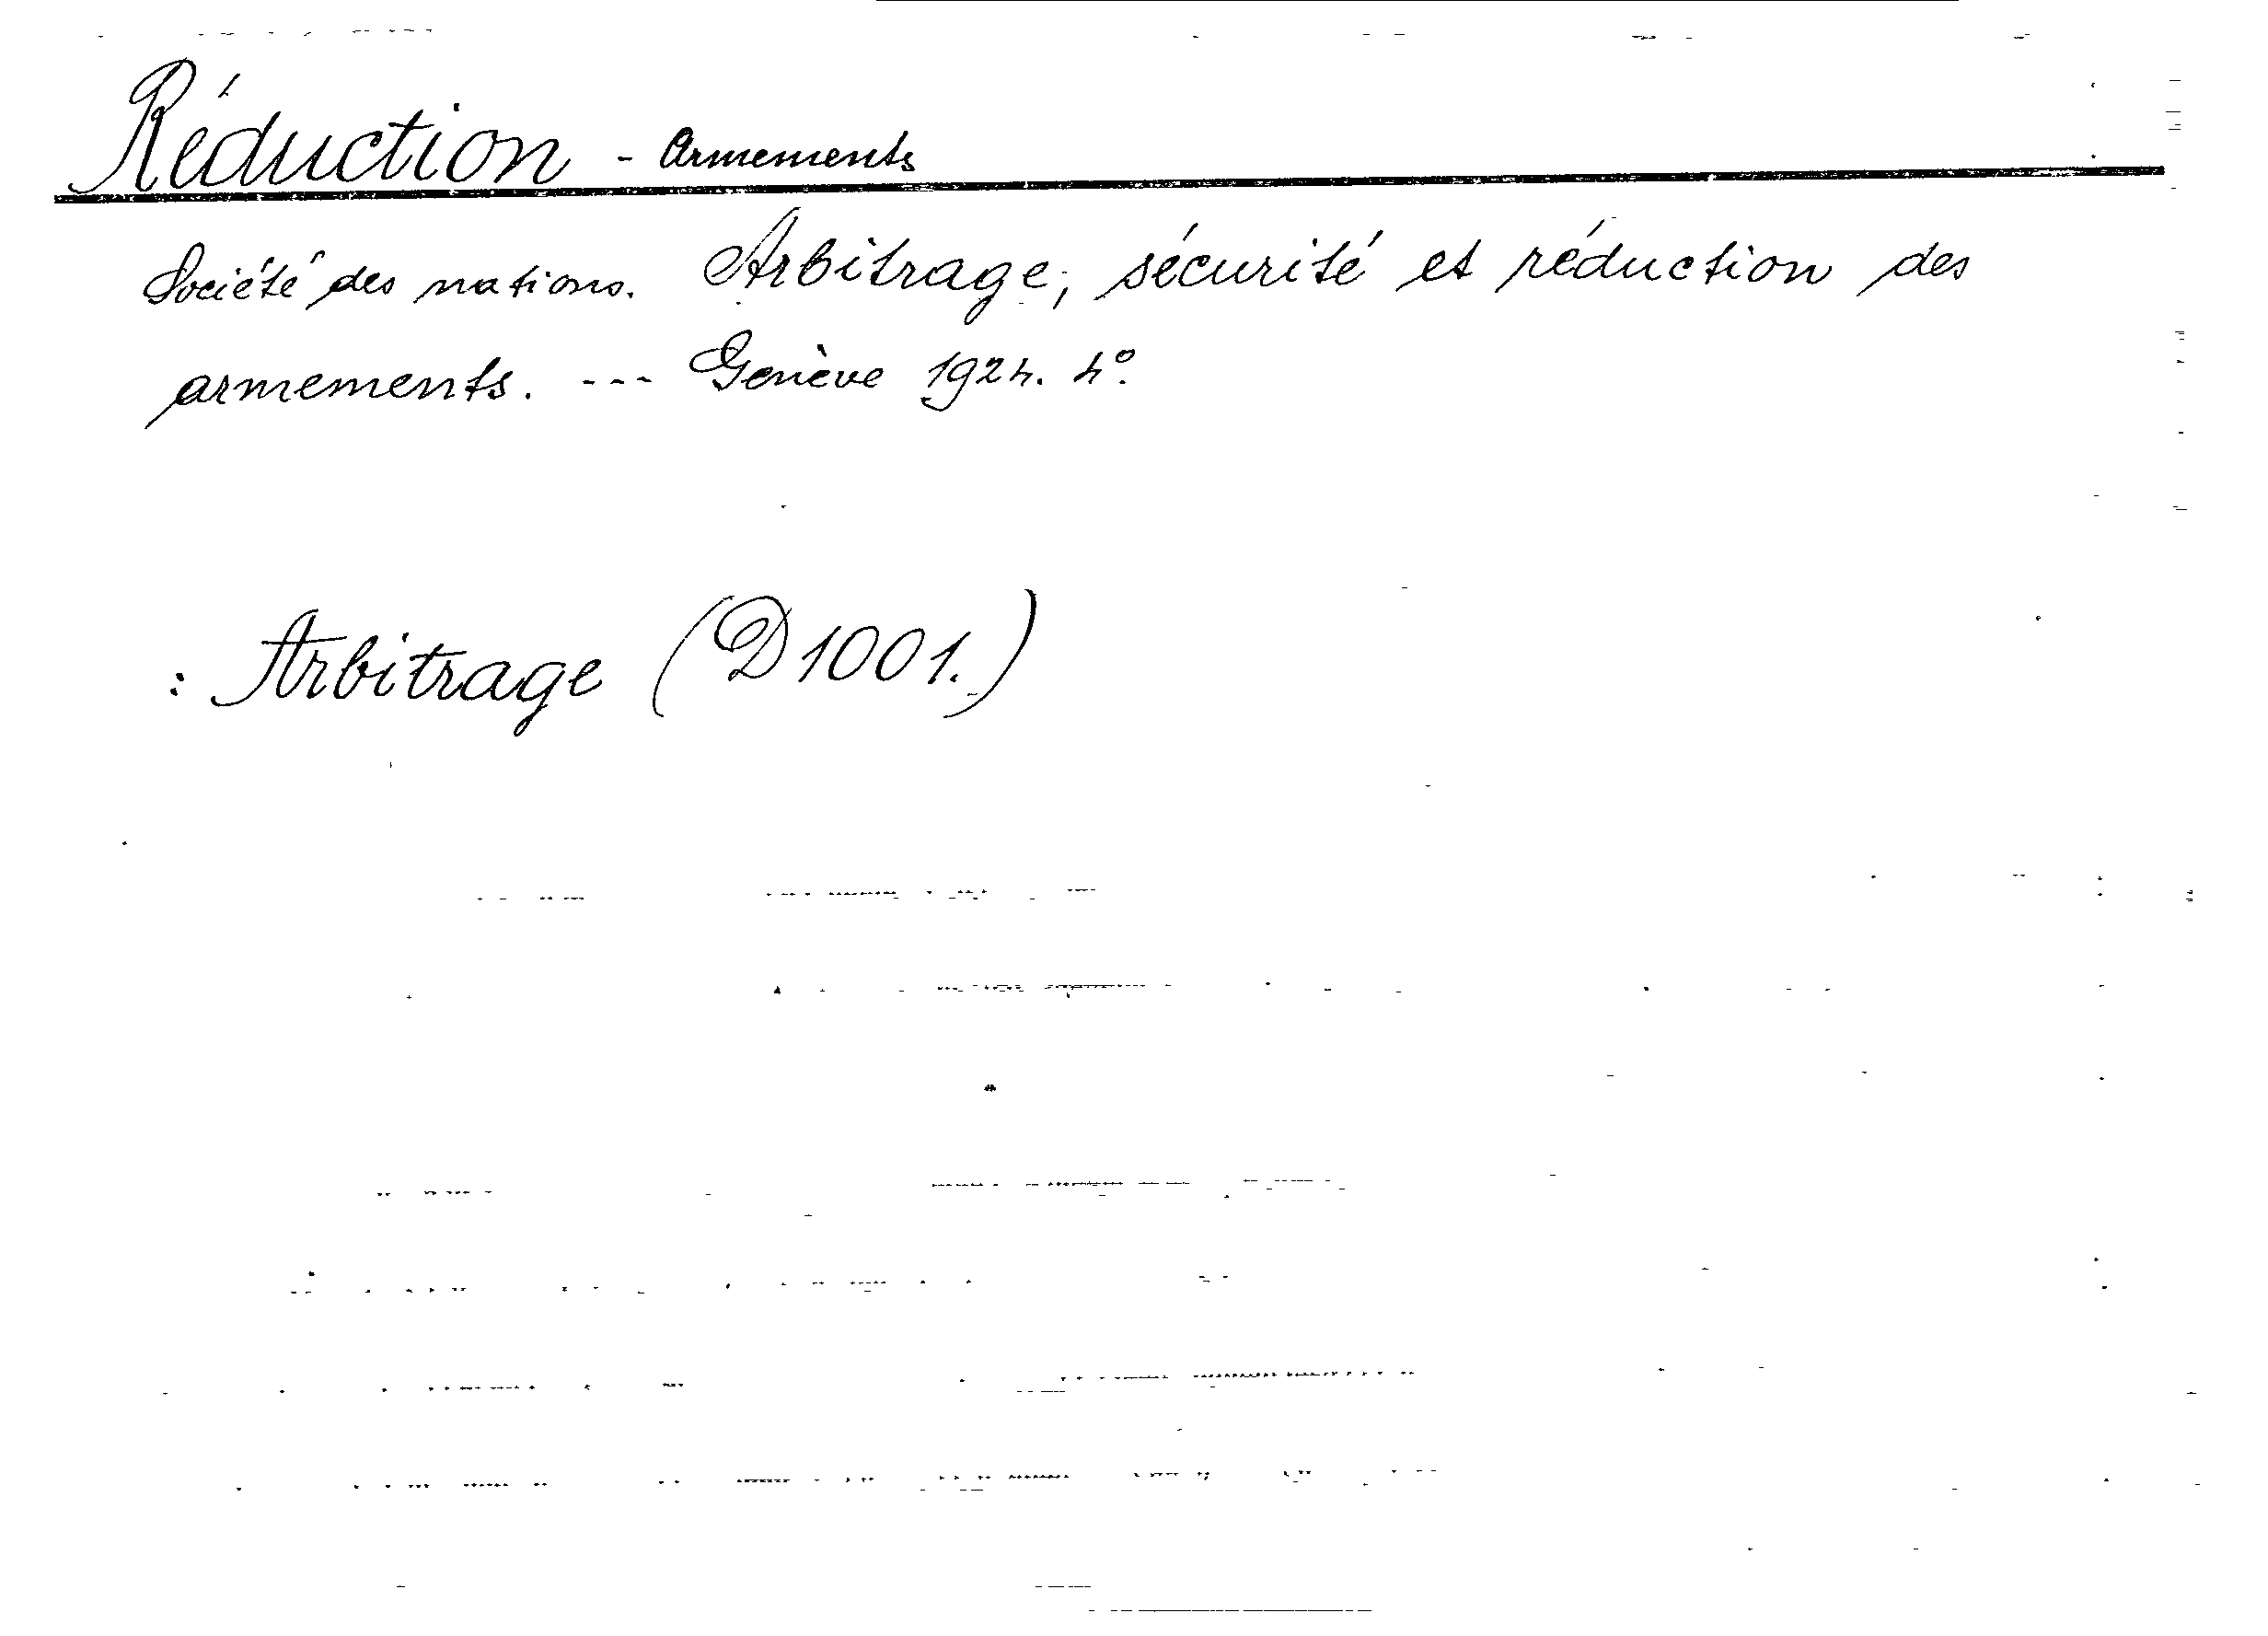 Réduction - Armements
Société des nations. Arbitrage, sécurité et réduction des
armements. --- Genève 1924. 4º.
: Arbitrage (D1001.)